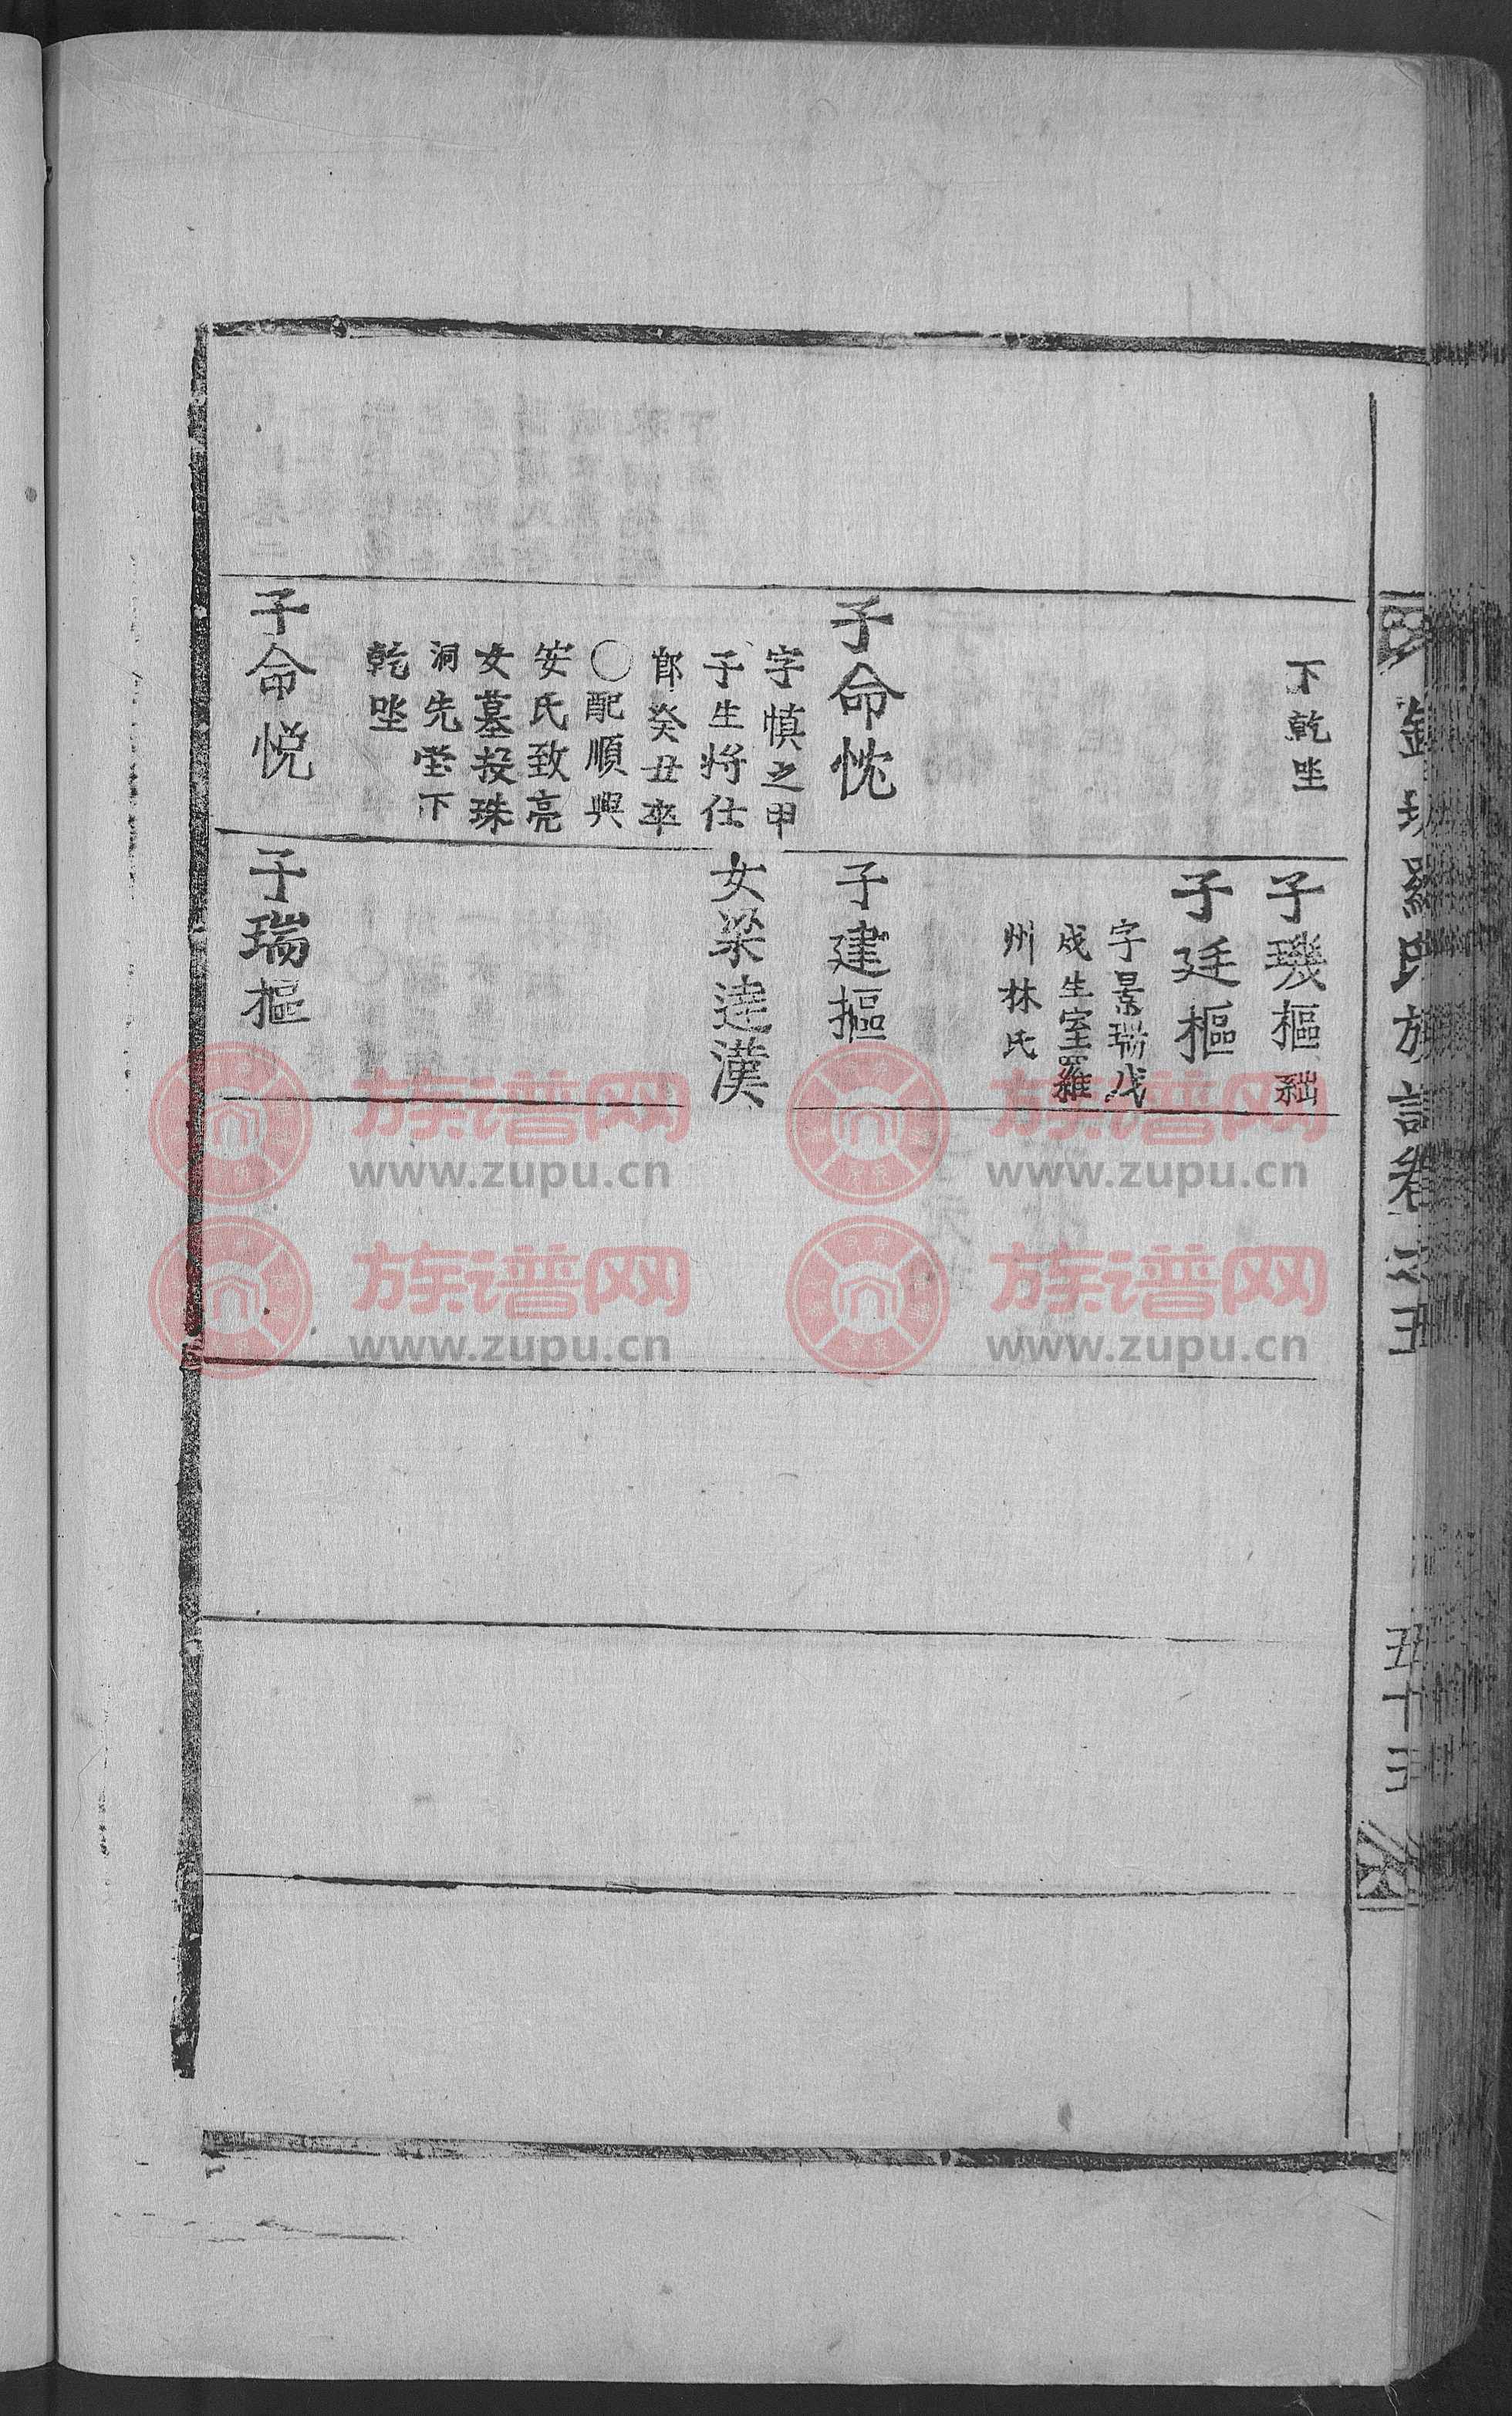 下乾坐
子命忱
字慎之甲
子生將仕
郎癸丑卒
〇配順興
安氏致亮
女墓投珠
洞先塋下
乾坐
子命悅
子璣樞 䋎
子廷樞
字景瑞戊
戌生室羅
州林氏
子建樞
女梁達漢
子瑞樞
五十三
族谱网
www.zupu.cn
族谱网
www.zupu.cn
族谱网
www.zupu.cn
族谱网
www.zupu.cn